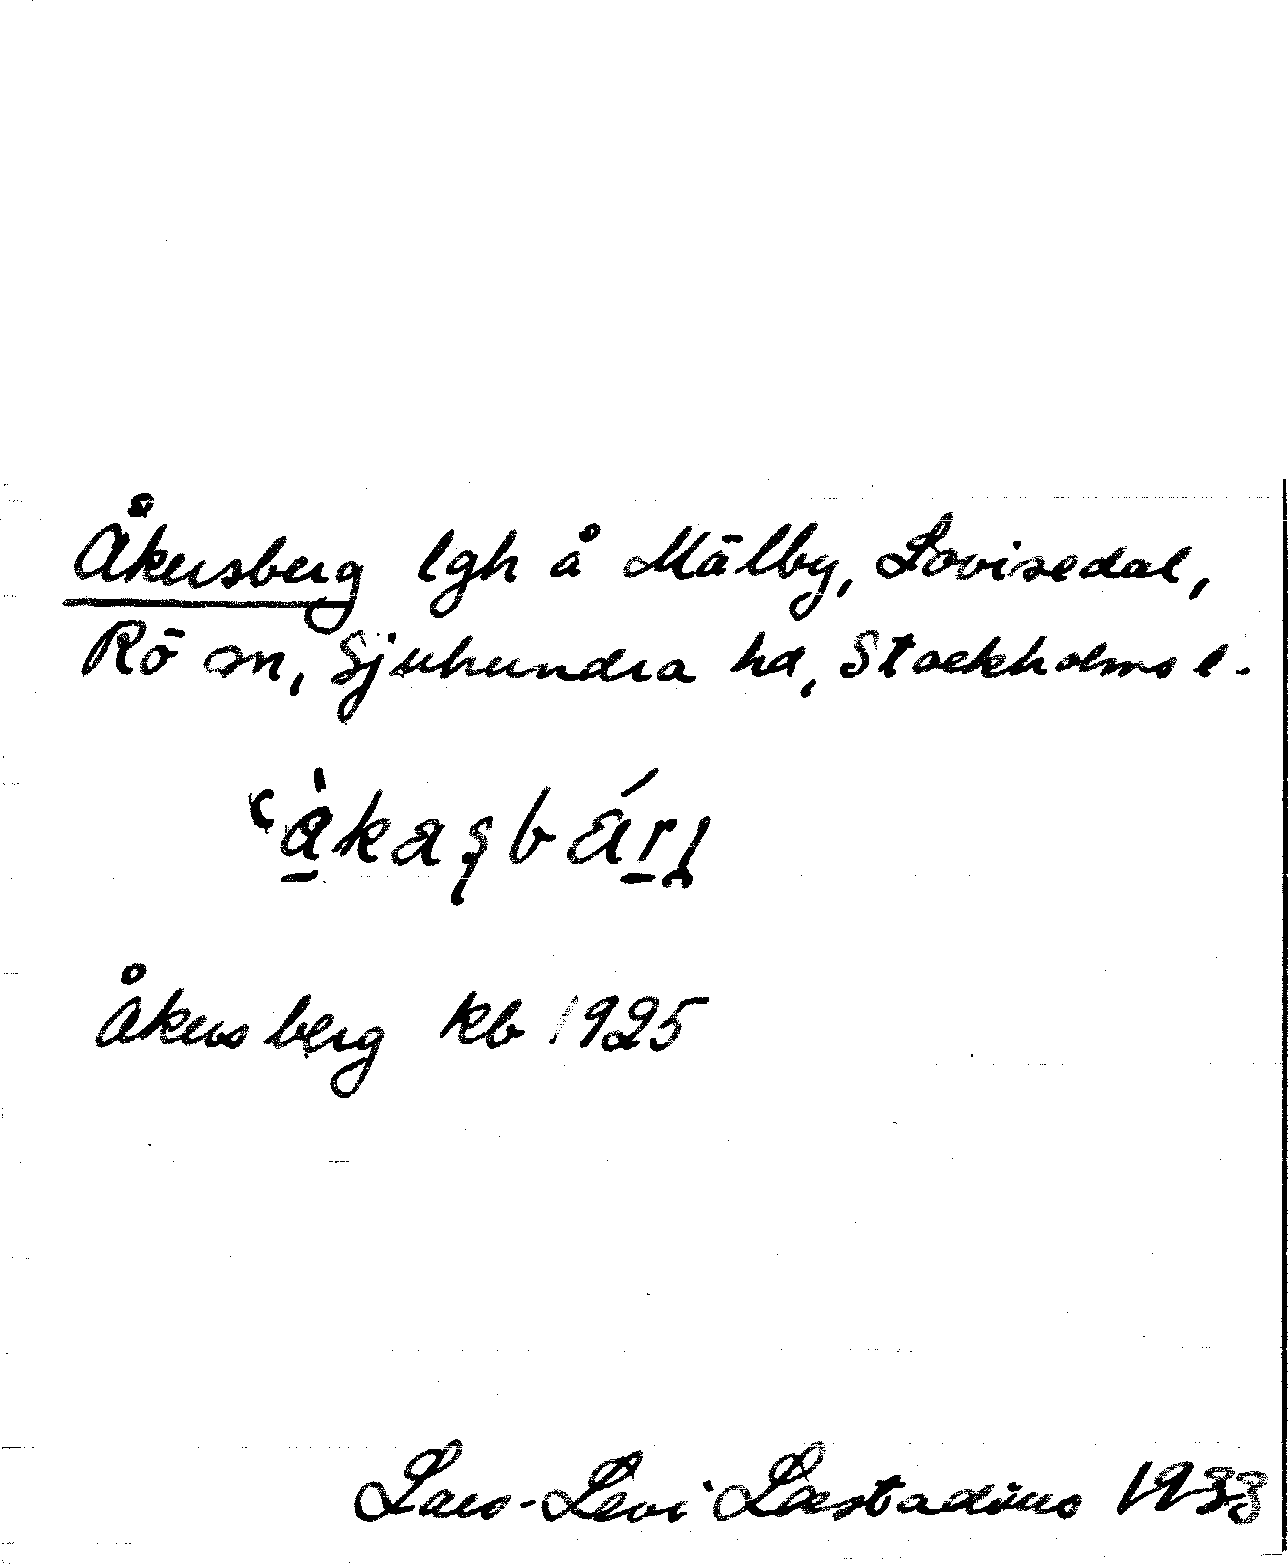 Åkersberg lgh å Mälby, Lovisedal,
Rö sn, Sjuhundra hd, Stockholms l.
Åkersberg kb 1925
Lars-Levi Læstadius 1933